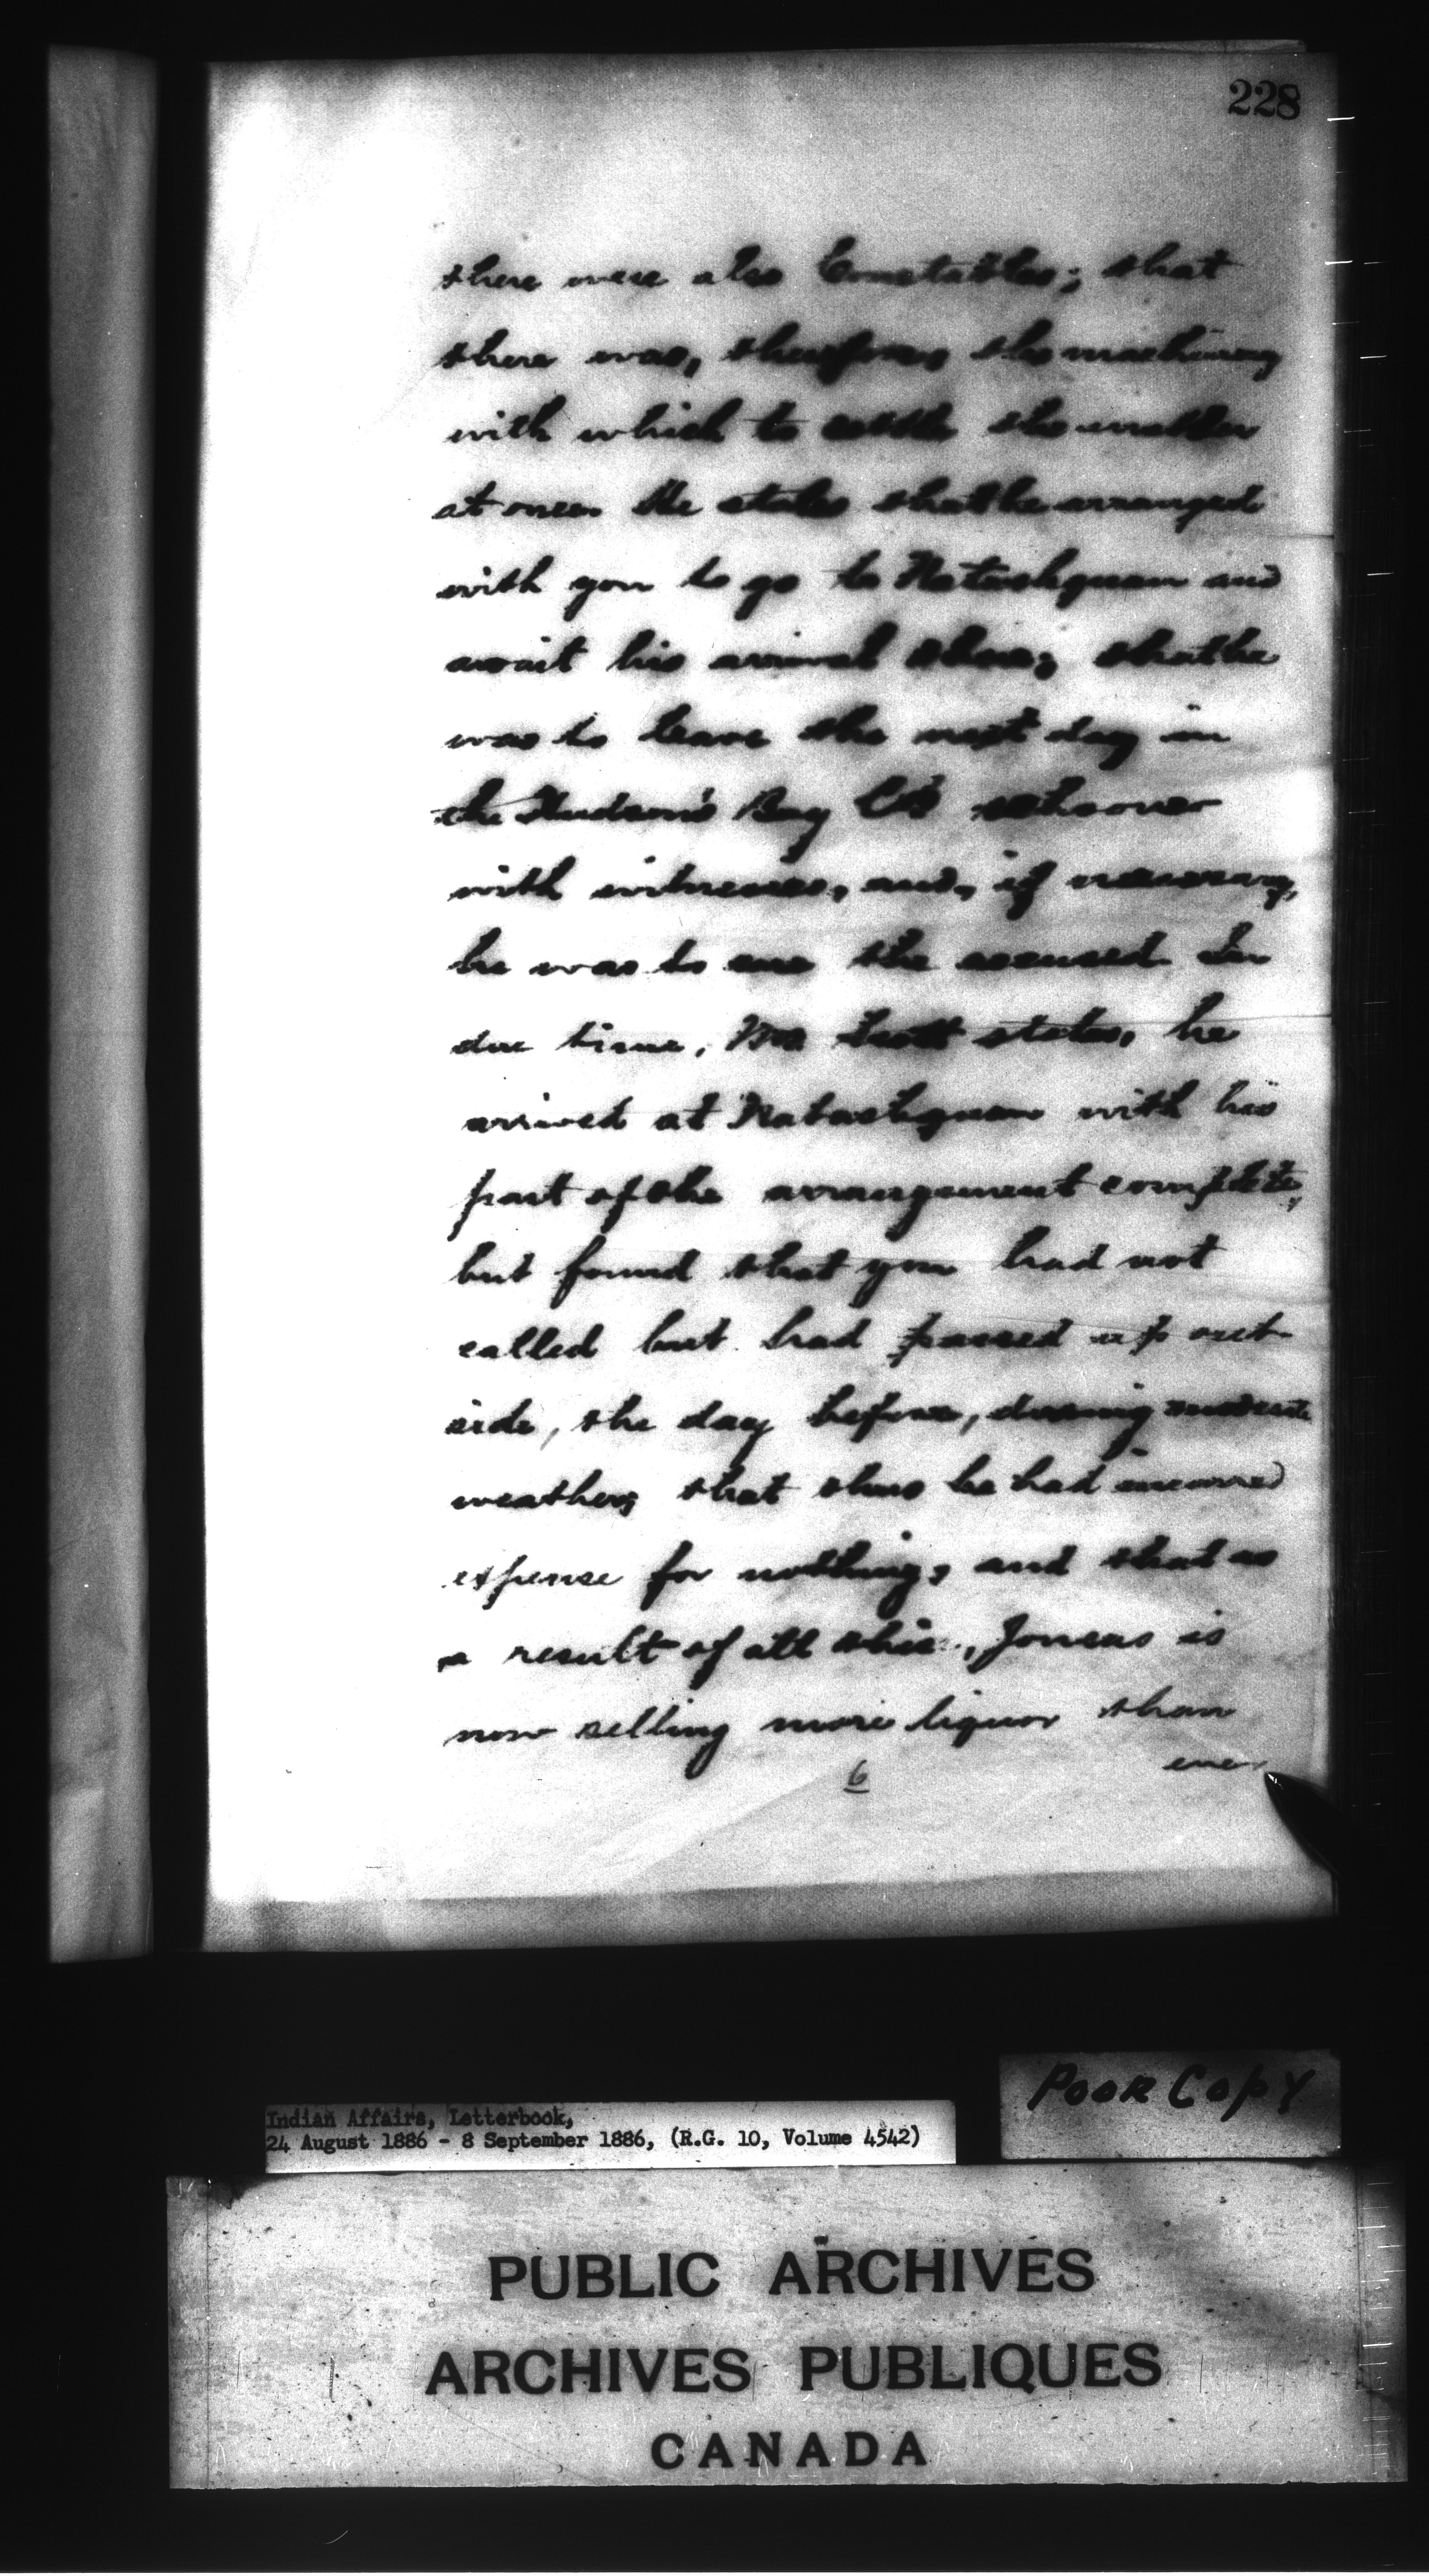 228
there were also Constables; that
there was, therefore, the machinery
with which to settle the matter
at once. He states that he arranged
with you to go to Natashquan and
await his arrival there; that he
was to leave the next day in
the Hudson's Bay Co's schooner
with witnesses, and, if necessary,
he was to sue the accused. In
due time, Mr Scott states, he
arrived at Natashquan with his
part of the arrangement complete,
but found that you had not
called but had passed up out-
side, the day before, during moderate
weather; that thus he had incurred
expense for nothing, and that as
a result of all this, Joncas is
now selling more liquor than
6
ever
POOR COPY
Indian Affairs, Letterbook,
24 August 1886 - 8 September 1886, (R.G. 10, Volume 4542)
PUBLIC ARCHIVES
ARCHIVES PUBLIQUES
CANADA